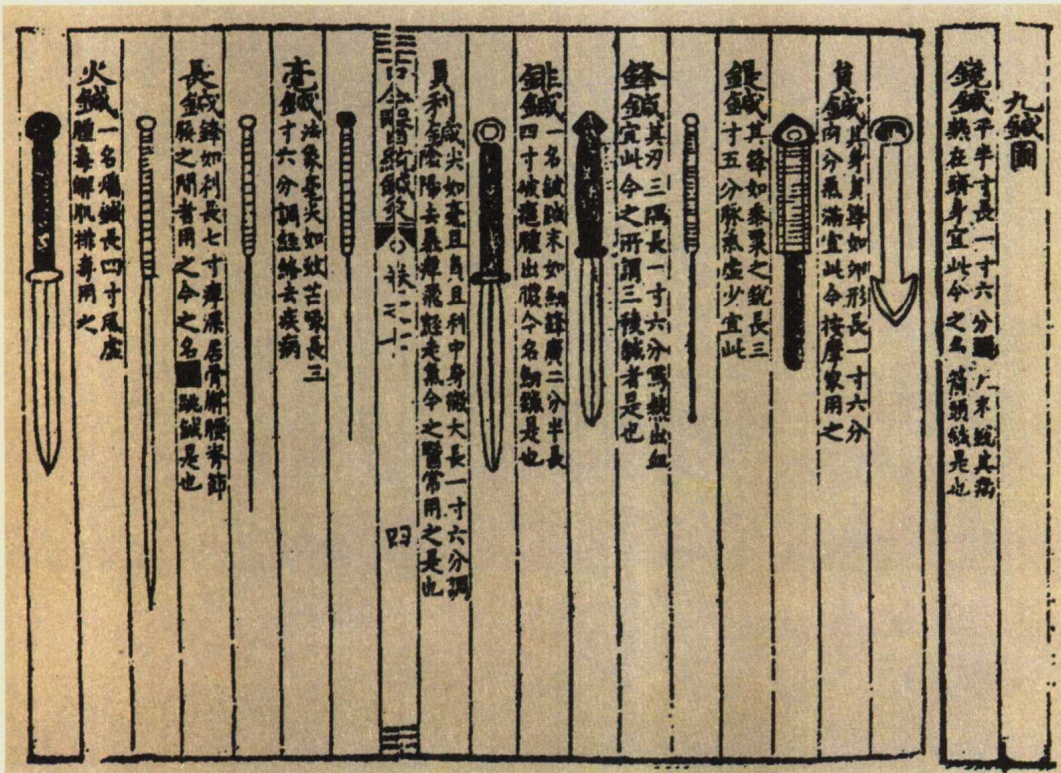 九鍼圖
鑱鍼平半寸長一寸六分
熱在頭身宜此今之名箭頭鍼是也
員鍼其身員鋒如卵形長一寸六分
肉分氣滿宜此今按摩家用之
鍉鍼其鋒如黍粟之銳長三
寸五分脉氣虚少宜此
鋒鍼其刃三隅長一寸六分
熱出血宜此今之所謂三稜鍼者是也
鈹鍼一名鈹
末如劍鋒廣二分半長四寸破癰腫出膿今名劍鍼是也
員利鍼尖如毫且員且利中身微大長一寸六分調
陰陽去暴痺飛經走氣今之醫常用之是也
古今醫統
卷
四
毫鍼法象毫尖如蚊芒喙長三
寸六分調經絡去疾病
長鍼鋒如利長七寸痺深居骨解腰脊節
腠之間者用之今之名跳鍼是也
火鍼一名燔鍼長四寸風虚
腫毒解肌排毒用之